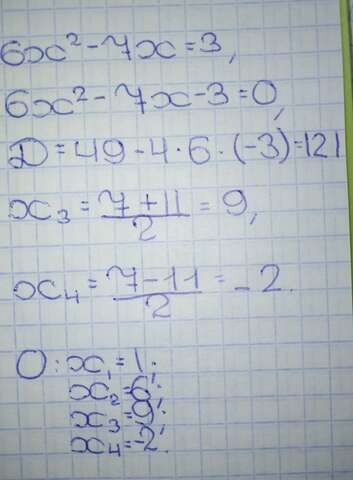 6x² - 7x = 3,
6x² - 7x - 3 = 0,
D = 49 - 4 · 6 · (-3) = 121
x₃ = (7 + 11)/2 = 9,
x₄ = (7 - 11)/2 = -2.
О: x₁ = 1;
x₂ = 6;
x₃ = 9;
x₄ = -2.